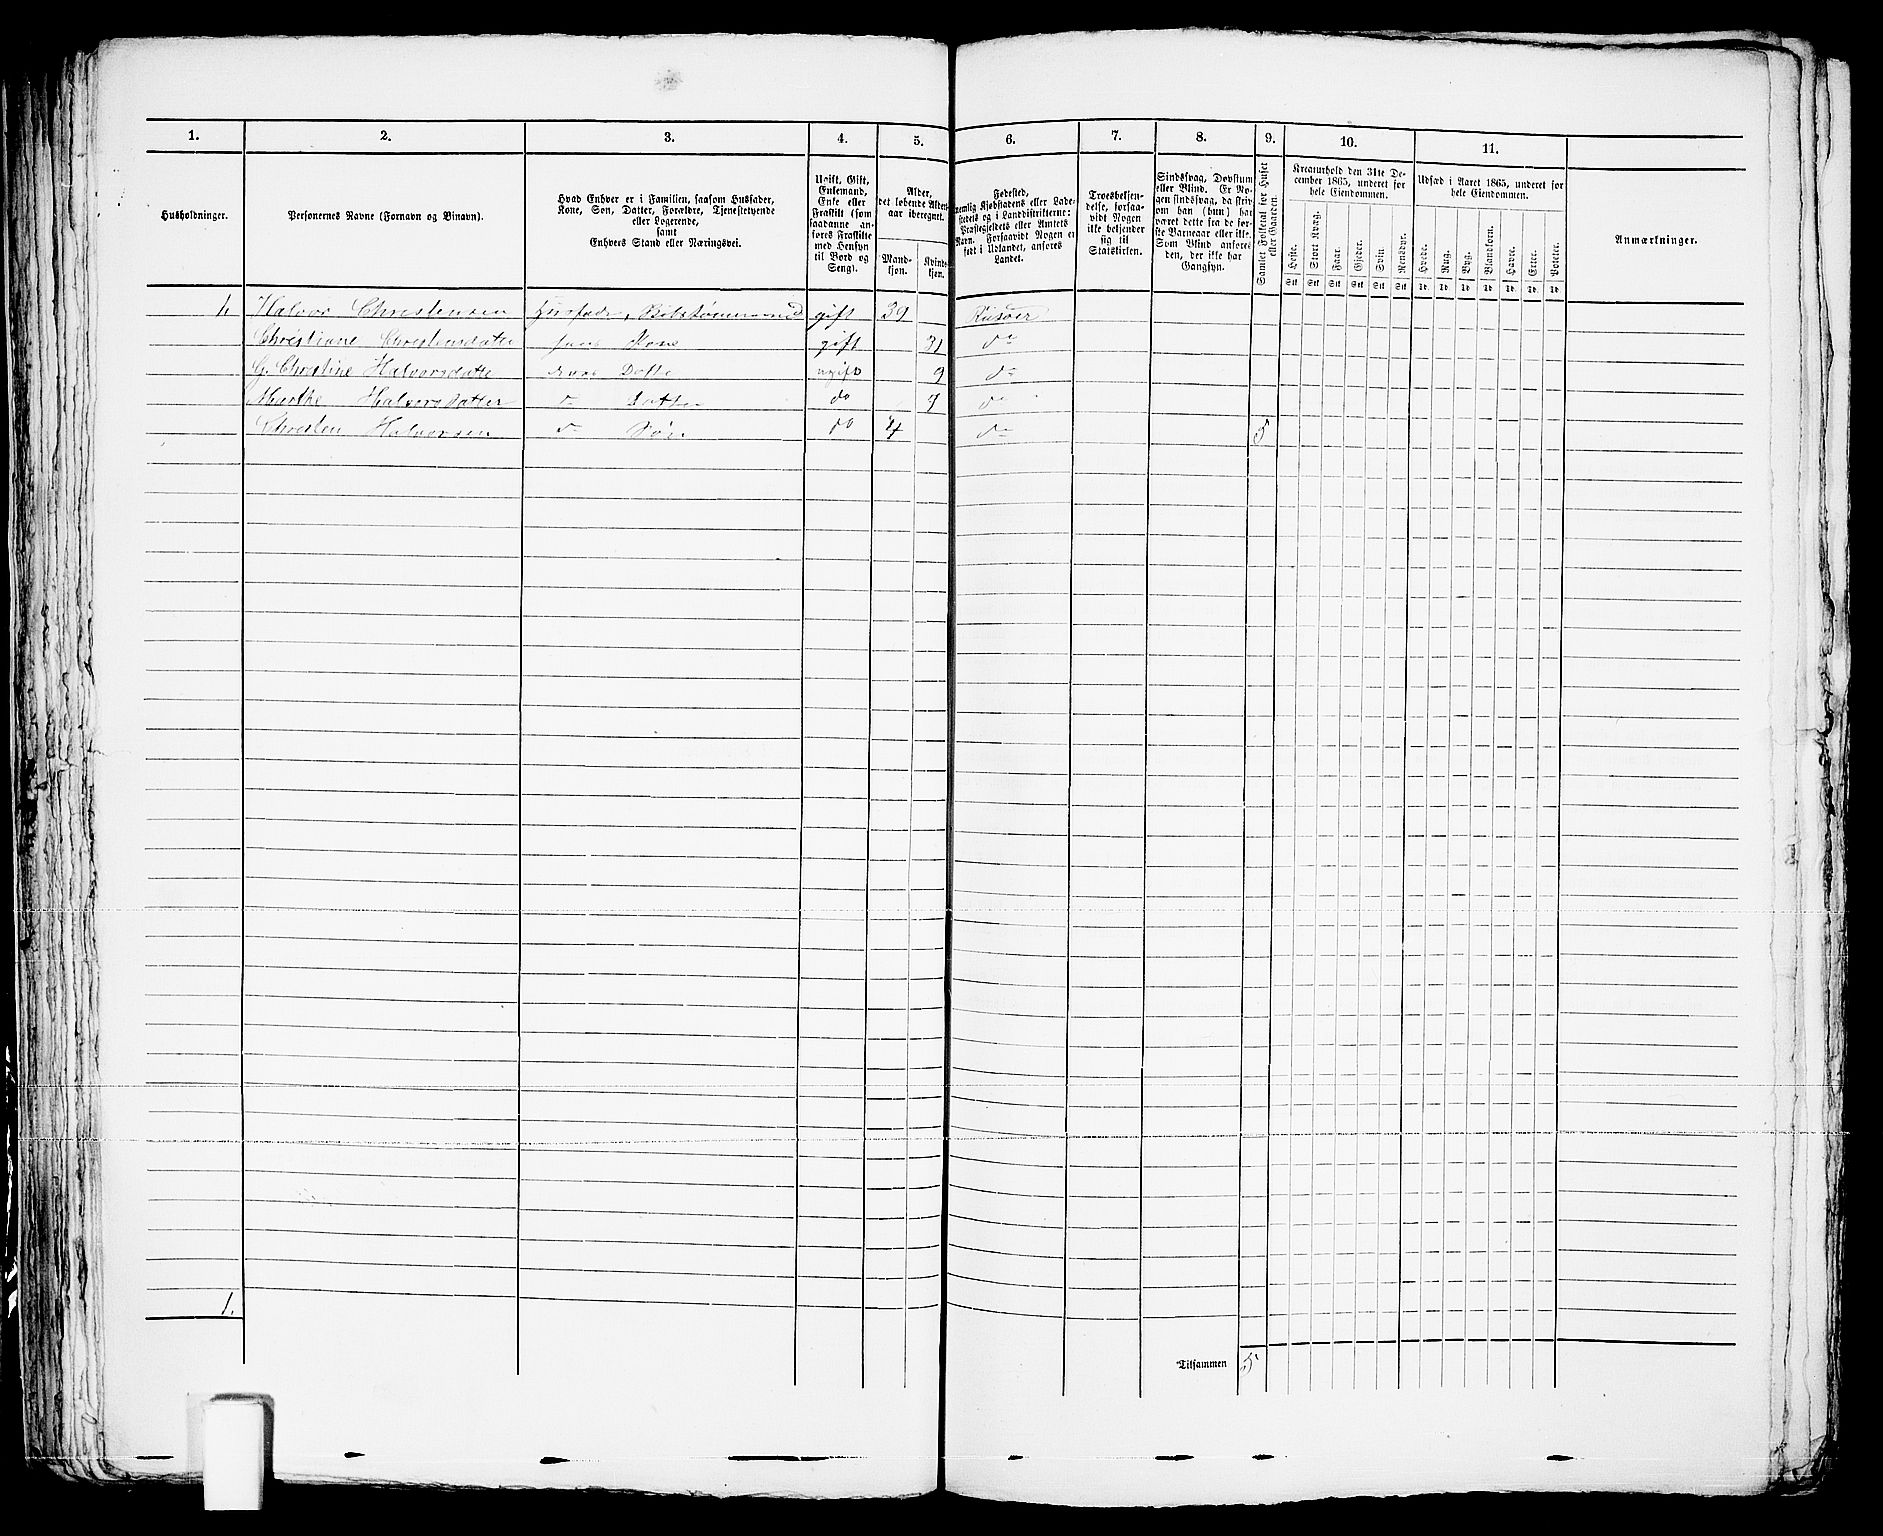 1. 2. 3. 4. 5. 6. 7. 8. 9. 10. 11.
Husholdninger.
Personernes Navne (Fornavn og Binavn).
Hvad Enhver er i Familien, saasom Husfader,
Kone, Søn, Datter, Forældre, Tjenestetyende
eller Logerende,
samt
Enhvers Stand eller Næringsvei.
Ugift, Gift,
Enkemand,
Enke eller
Fraskilt (som
saadanne an-
føres Fraskilte
med Hensyn
til Bord og
Seng).
Alder,
det løbende Alders-
aar iberegnet.
Mand-
kjøn.
Kvinde-
kjøn.
Fødested,
nemlig Kjøbstadens eller Lade-
stedets og i Landdistrikterne:
Præstegjeldets eller Amtets
Navn. Forsaavidt Nogen er
født i Udlandet, anføres
Landet.
Troesbekjen-
delse, forsaa-
vidt Nogen
ikke bekjender
sig til
Statskirken.
Sindssvag, Døvstum
eller Blind. Er No-
gen sindssvag, da skriv
om han (hun) har
været dette fra de før-
ste Barneaar eller ikke.
Som Blind anføres
den, der ikke har
Gangsyn.
Samlet Folketal for Huset
eller Gaarden.
Kreaturhold den 31te De-
cember 1865, underet for
hele Eiendommen.
Heste. Stort Kvæg. Faar. Gjeder. Svin. Rensdyr.
Stk Stk Stk Stk Stk Stk
Udsæd i Aaret 1865, underet for
hele Eiendommen.
Hvede. Rug. Byg. Blandkorn. Havre. Erter. Poteter.
Td. Td. Td. Td. Td. Td. Td.
Anmærkninger.
1. Halvor Christensen Husfader, gift 39 Risøer
Christiane Christensdatter hans Kone gift 31 do
G. Christine Halvorsdatter deres Datter ugift 9 do
Marthe Halvorsdatter do Datter do 7 do
Christen Halvorsen do Søn do 4 do 5
1.
Tilsammen 5